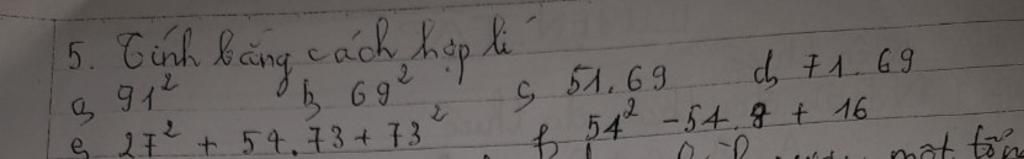 5. Tính bằng cách hợp lí
a, 91² b, 69² c, 51.69 d, 71.69
e, 27² + 54.73 + 73² f, 54² - 54.8 + 16
một